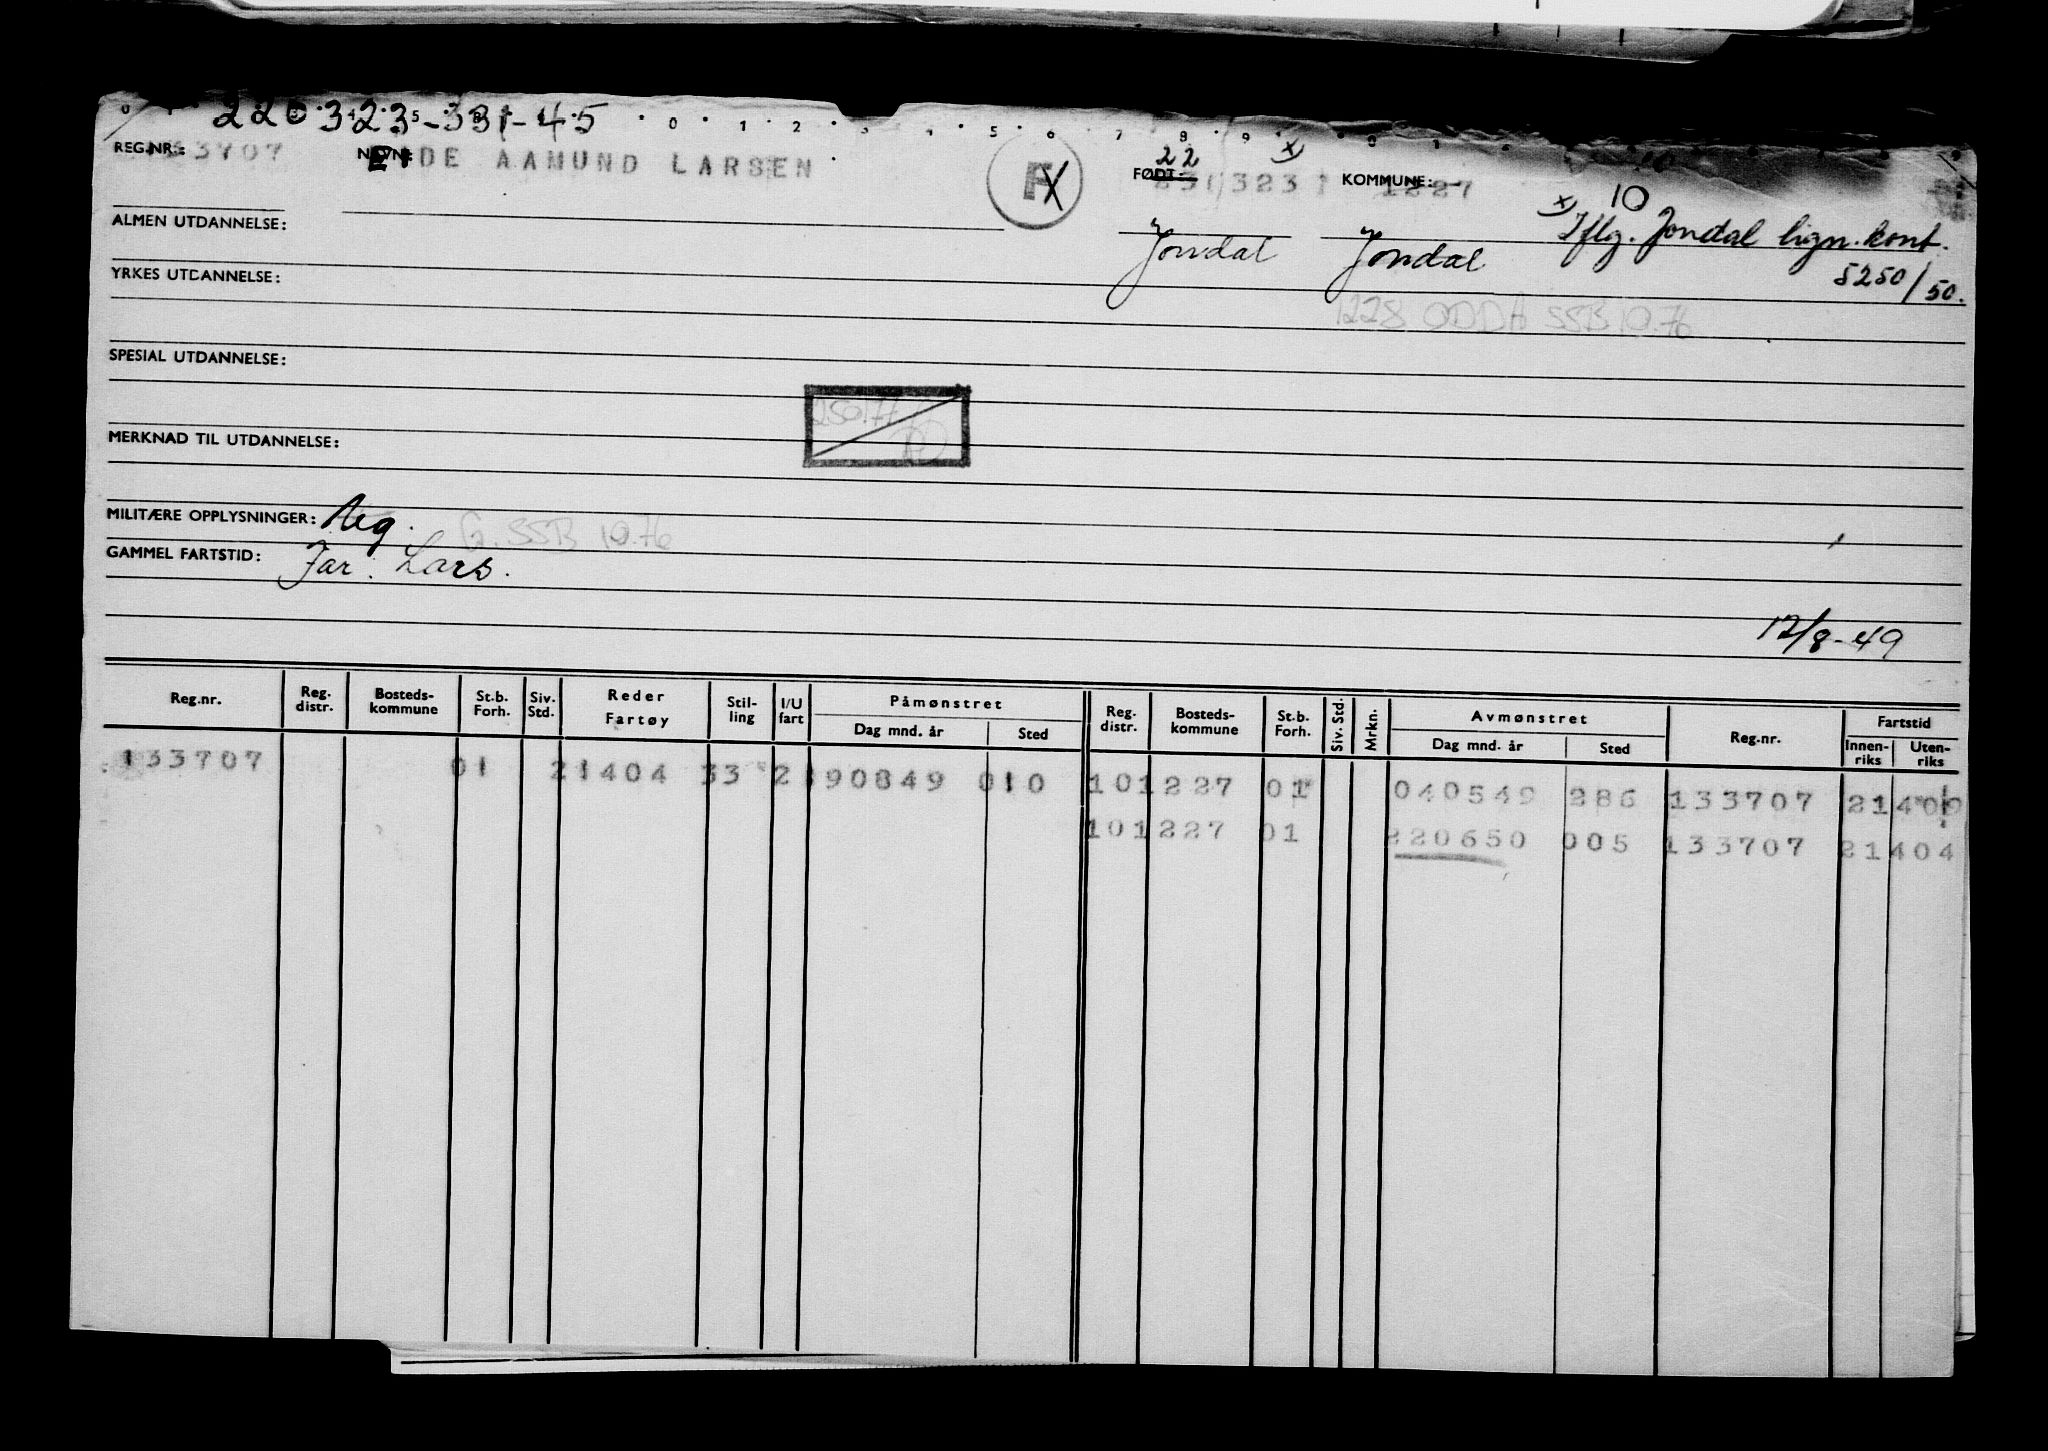 220323-331-45
REG.NR.: 133707 NAVN: EIDE AAMUND LARSEN FX FØDT: 22 X) KOMMUNE: 1227 10
ALMEN UTDANNELSE: Jondal Jondal X) Iflg. Jondal lign.kont.
5250/50.
YRKES UTDANNELSE:
1228 ODDA SSB 10.76
SPESIAL UTDANNELSE:
MERKNAD TIL UTDANNELSE:
MILITÆRE OPPLYSNINGER: Neg. G. SSB 10.76
GAMMEL FARTSTID: Far: Lars.
12/8-49
Reg.nr. Reg. distr. Bosteds- kommune St.b. Forh. Siv. Std. Reder Fartøy Stil- ling I/U fart Påmønstret Dag mnd. år Sted Reg. distr. Bosteds- kommune St.b. Forh. Siv. Std. Mrkn. Avmønstret Dag mnd. år Sted Reg.nr. Fartstid Innen- riks Uten- riks
133707 01 21404 33 2 90849 010 101227 01 040549 286 133707
101227 01 220650 005 133707 21404